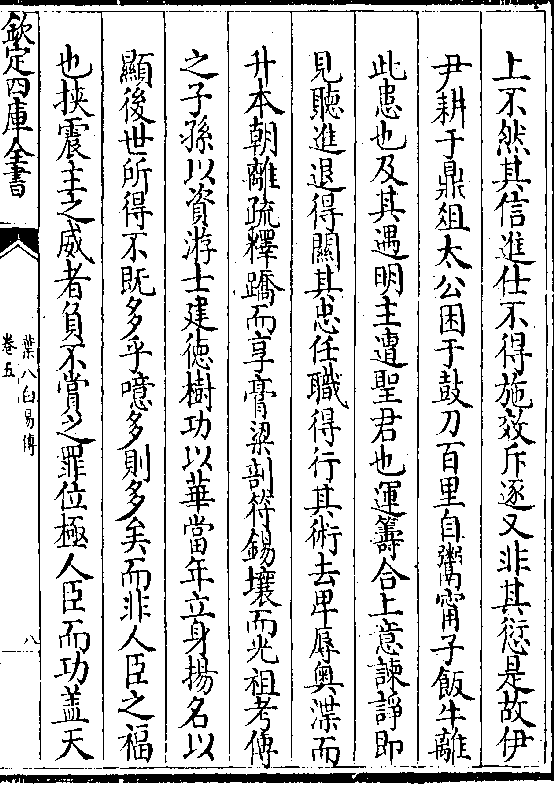 上不然其信進仕不得施效斥逐又非其愆是故伊
尹耕于鼎俎太公困于鼓刀百里自鬻甯子飯牛離
此患也及其遇明主遭聖君也運籌合上意諫諍即
見聽進退得關其忠任職得行其術去卑辱奧渫而
升本朝離疏釋蹻而享膏粱剖符錫壤而光祖考傳
之子孫以資游士建徳樹功以華當年立身揚名以
顯後世所得不既多乎噫多則多矣而非人臣之福
也挟震主之威者負不賞之罪位極人臣而功盖天
欽定四庫全書
葉八白易傳
卷五
八